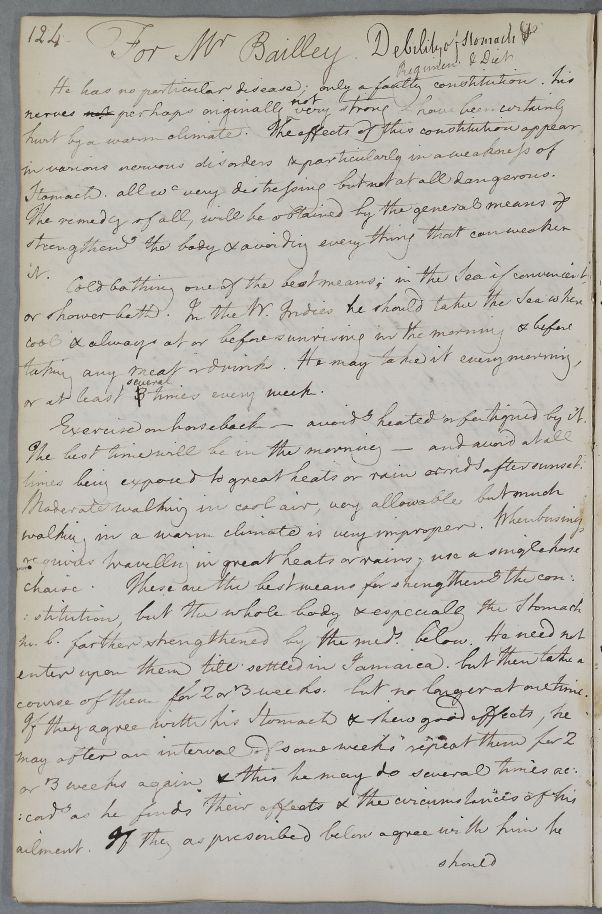 124
For Mr Bailley. Debility of Stomach &
Regimen & Diet
He has no particular disease; only a faulty constitution. his
nerves not perhaps originally not very strong have been certainly
hurt by a warm climate. The effects of this constitution appear
in various nervous disorders & particularly in a weakness of
Stomach. all wc very distressing but not at all dangerous.
The remedy of all, will be obtained by the general means of
strengtheng the body & avoiding every thing that can weaken
it.
Cold bathing one of the best means; in the Sea if convenient,
or shower bath. In the W. Indies he should take the Sea when
cool & always at or before sunrising in the morning & before
taking any meat or drink. He may take it every morning,
or at least 3 several times every week.
Exercise on horseback – avoidg heated or fatigued by it.
The best time will be in the morning – and avoid at all
times being exposed to great heats or rain or winds after sunset.
Moderate walking in cool air, very allowable but much
walking in a warm climate is very improper. When business
requires travelling in great heats or rains; use a single horse
chaise. These are the best means for strengtheng the con:
:stitution, but the whole body & especially the Stomach
m. b. farther strengthened by the meds. below. He need not
enter upon them till settled in Jamaica. but then take a
course of them for 2 or 3 weeks. but no longer at one time.
If they agree with his Stomach & shew good effects, he
may after an interval of some weeks repeat them for 2
or 3 weeks again & this he may do several times ac:
:cordg as he finds their effects & the circumstances of his
ailment. If they as prescribed below agree with him he
should